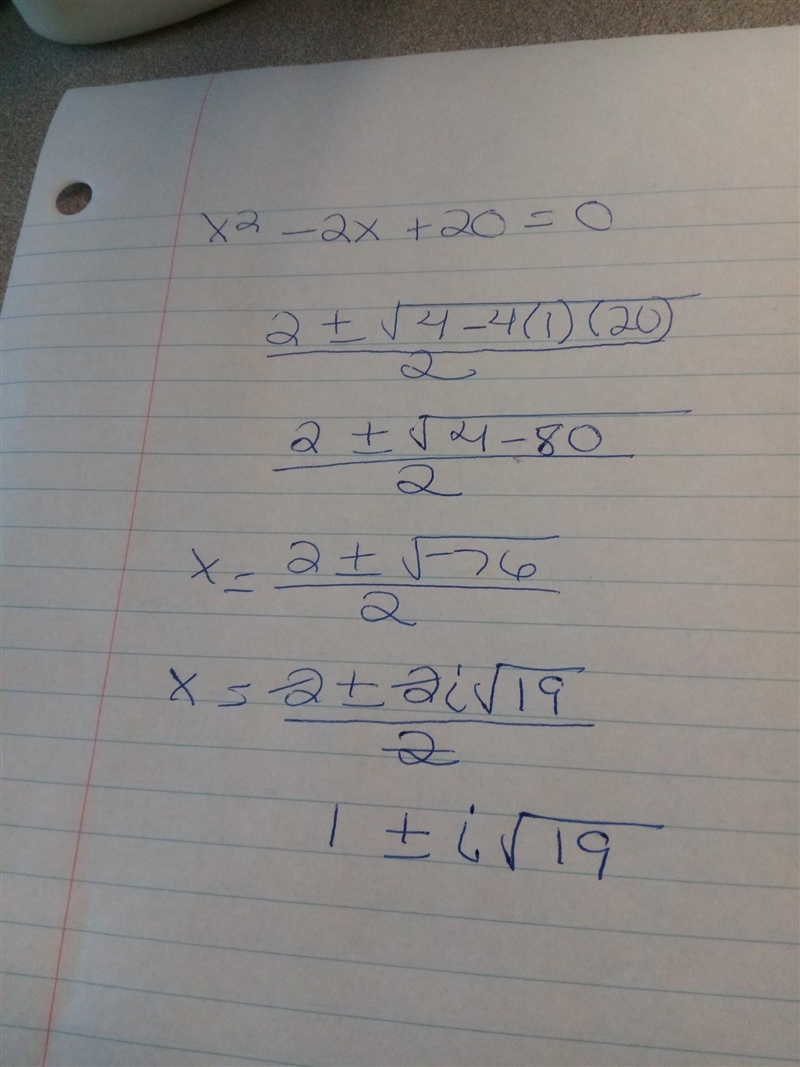 x² - 2x + 20 = 0
2 ± √4 - 4(1)(20)
2
2 ± √4 - 80
2
x = 2 ± √-76
2
x = 2 ± 2i√19
2
1 ± i√19